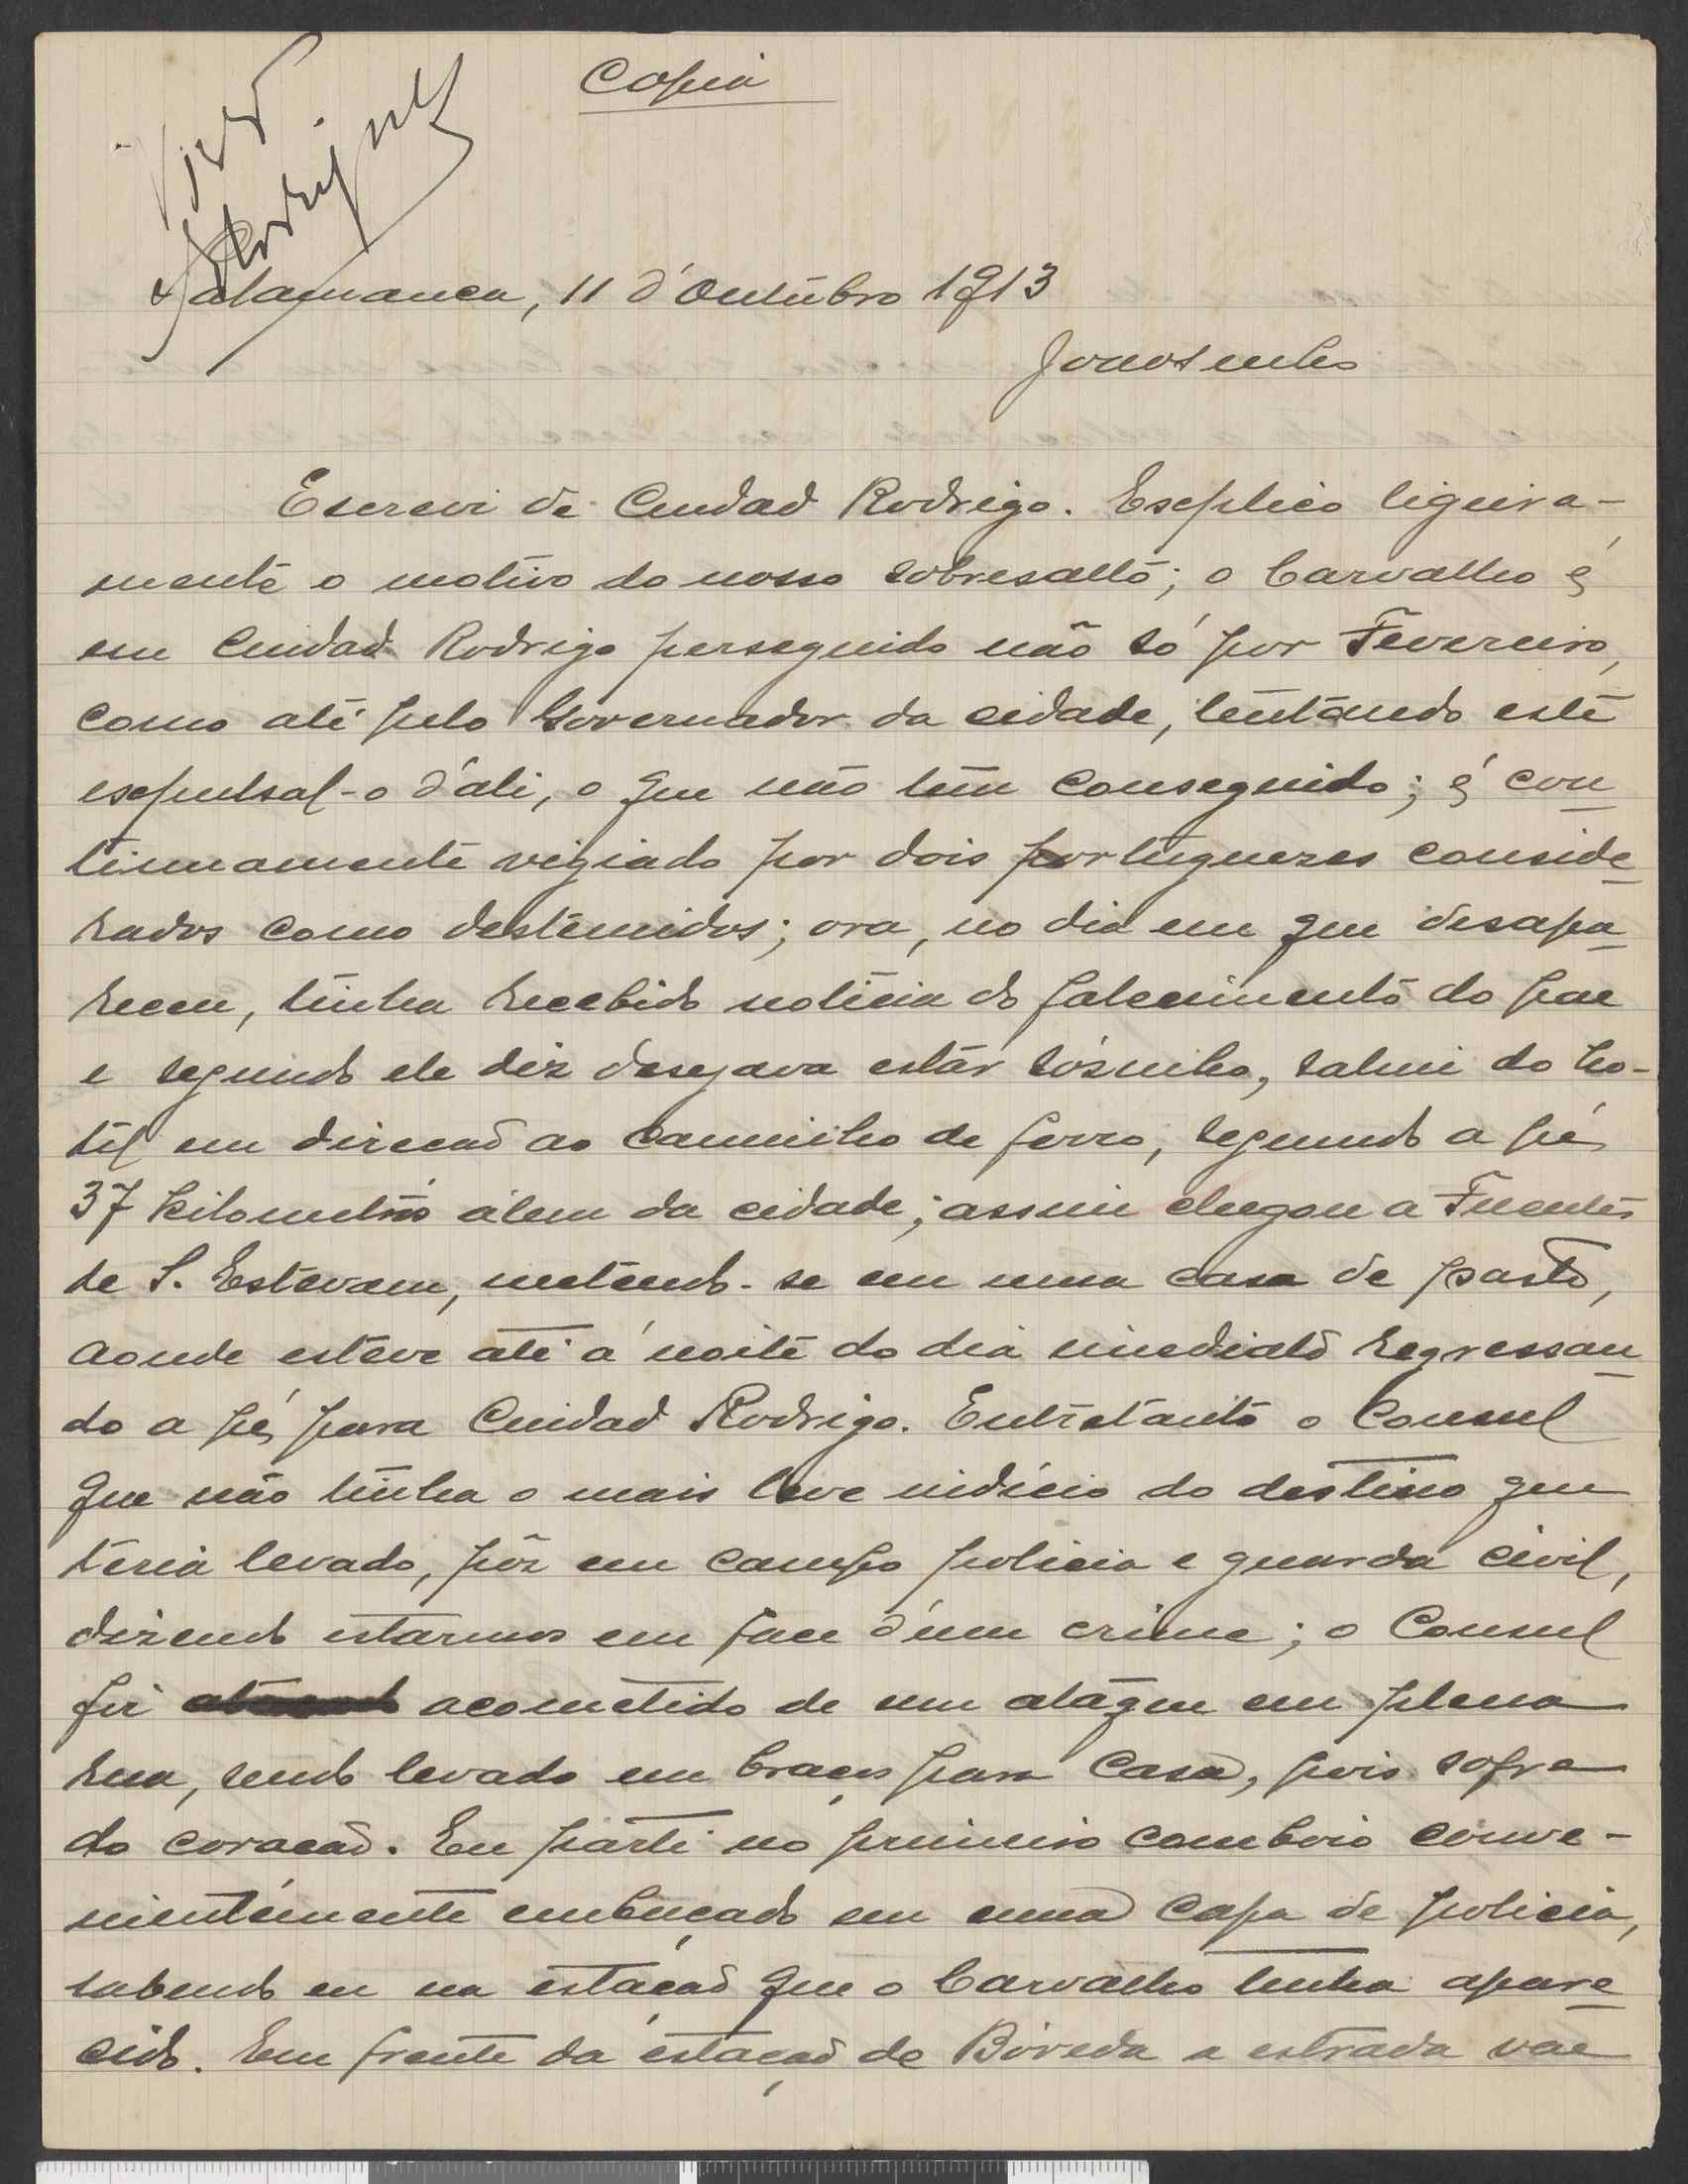 Copia
Visto
Rodrigues
Salamanca, 11 d'Outubro 1913
Escrevi de Cuidad Rodrigo. Eseplico ligeira-
mente o motivo do nosso sobresalto; o Carvalho é
em Cuidad Rodrigo perseguido não só por Fevereiro,
como até pelo Governador da cidade, tentando este
esepulsal-o d'ali, o que não tem conseguido; é con
tinuamente vigiado por dois portuguezes conside
rados como destemidos; ora, no dia em que desapa
receu, tinha recebido noticia do falecimento do pae
e segundo ele diz desejava estár sósinho, sahui do ho-
tel em direcção ao caminho de ferro, seguindo a pé
37 kilometros álem da cidade; assim chegou a Fuentes
de S. Estevam, metendo-se em uma casa de pasto,
aonde esteve até á noite do dia imediato regressan
do a pé para Cuidad Rodrigo. Entretanto o Consul
que não tinha o mais leve indício do destino que
teria levado, pôz em campo policia e guarda civil,
dizendo estarmos em face d'um crime; o Consul
foi acometido de um ataque em plena
rua, sendo levado em braços para casa, pois sofre
do coração. Eu parti no primeiro comboio conve-
nientemente embuçado em uma capa de policia,
sabendo eu na estação que o Carvalho tinha apare
cido. Em frente da estação de Bóveda a estrada vae